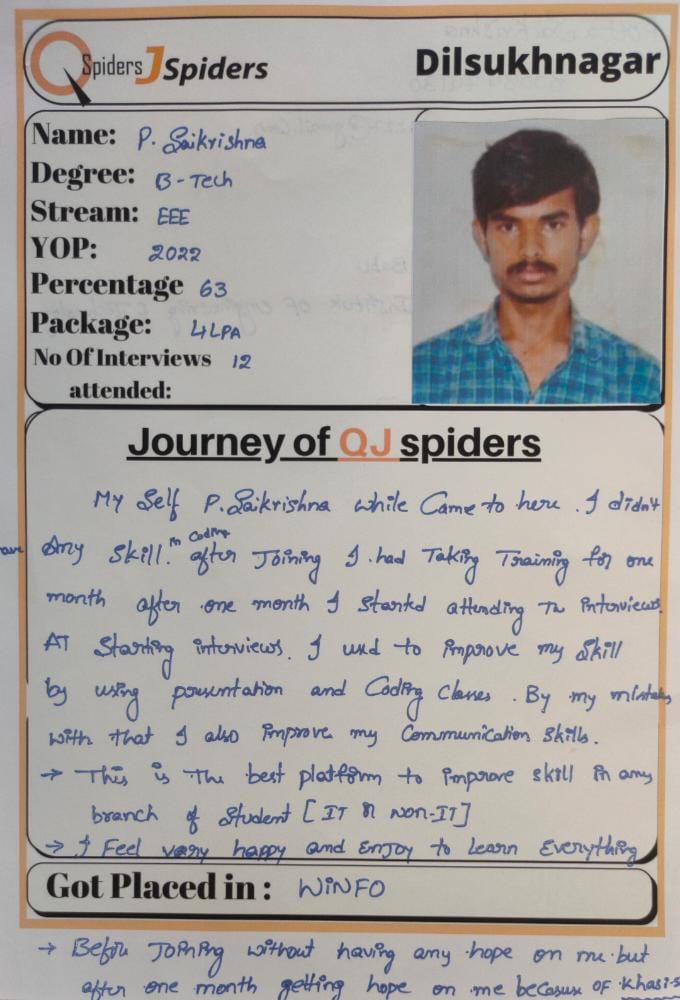 QSpiders JSpiders
Dilsukhnagar
Name: P. Saikrishna
Degree: B-Tech
Stream: EEE
YOP: 2022
Percentage 63
Package: 4LPA
No Of Interviews 12
attended:
Journey of QJ spiders
My Self P.Saikrishna while Came to here. I didn't
have Any Skill. in Coding after Joining I had Taking Training for one
month after one month I Started attending The interviews.
AT Starting interviews. I used to improve my Skill
by using presentation and Coding Classes. By my mistakes
with that I also improve my Communication skills.
→ This is The best platform to improve skill in any
branch of Student [IT or NON-IT]
→ I Feel very happy and Enjoy to Learn Everything
Got Placed in: WiNFO
→ Before Joining without having any hope on me but
after one month getting hope on me because of